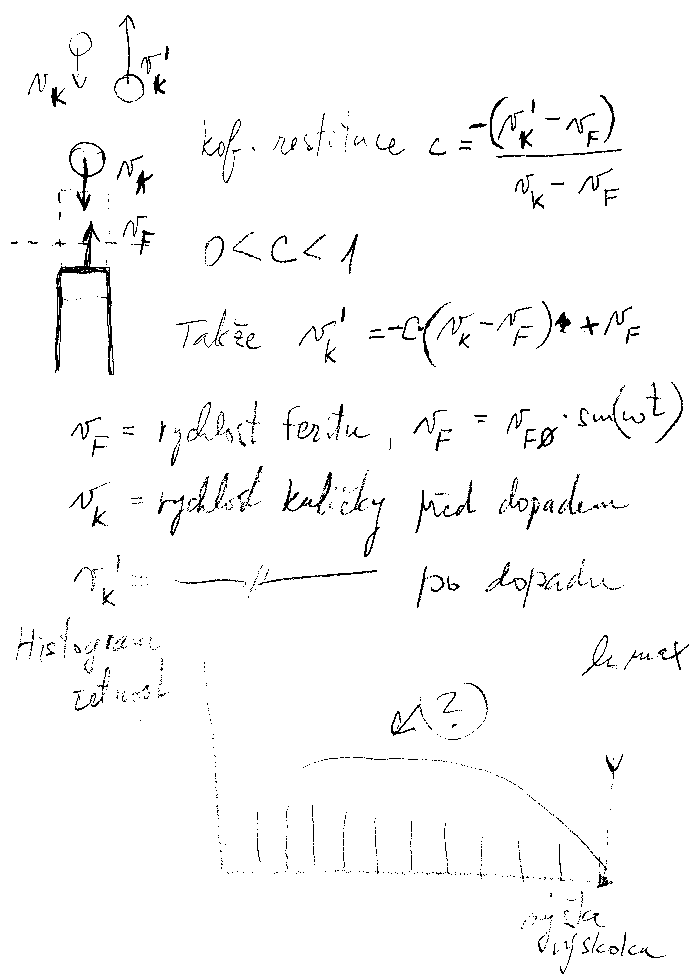 v_K v_K'
v_K
v_F
kof. restituce c = -(v_K' - v_F) / (v_K - v_F)
0 < c < 1
Takže v_K' = -c(v_K - v_F) + v_F
v_F = rychlost feritu, v_F = v_F0 · sin(ωt)
v_K = rychlost kuličky před dopadem
v_K' = —〃— po dopadu
Histogram
četnost
h max
?
výška
výskoku